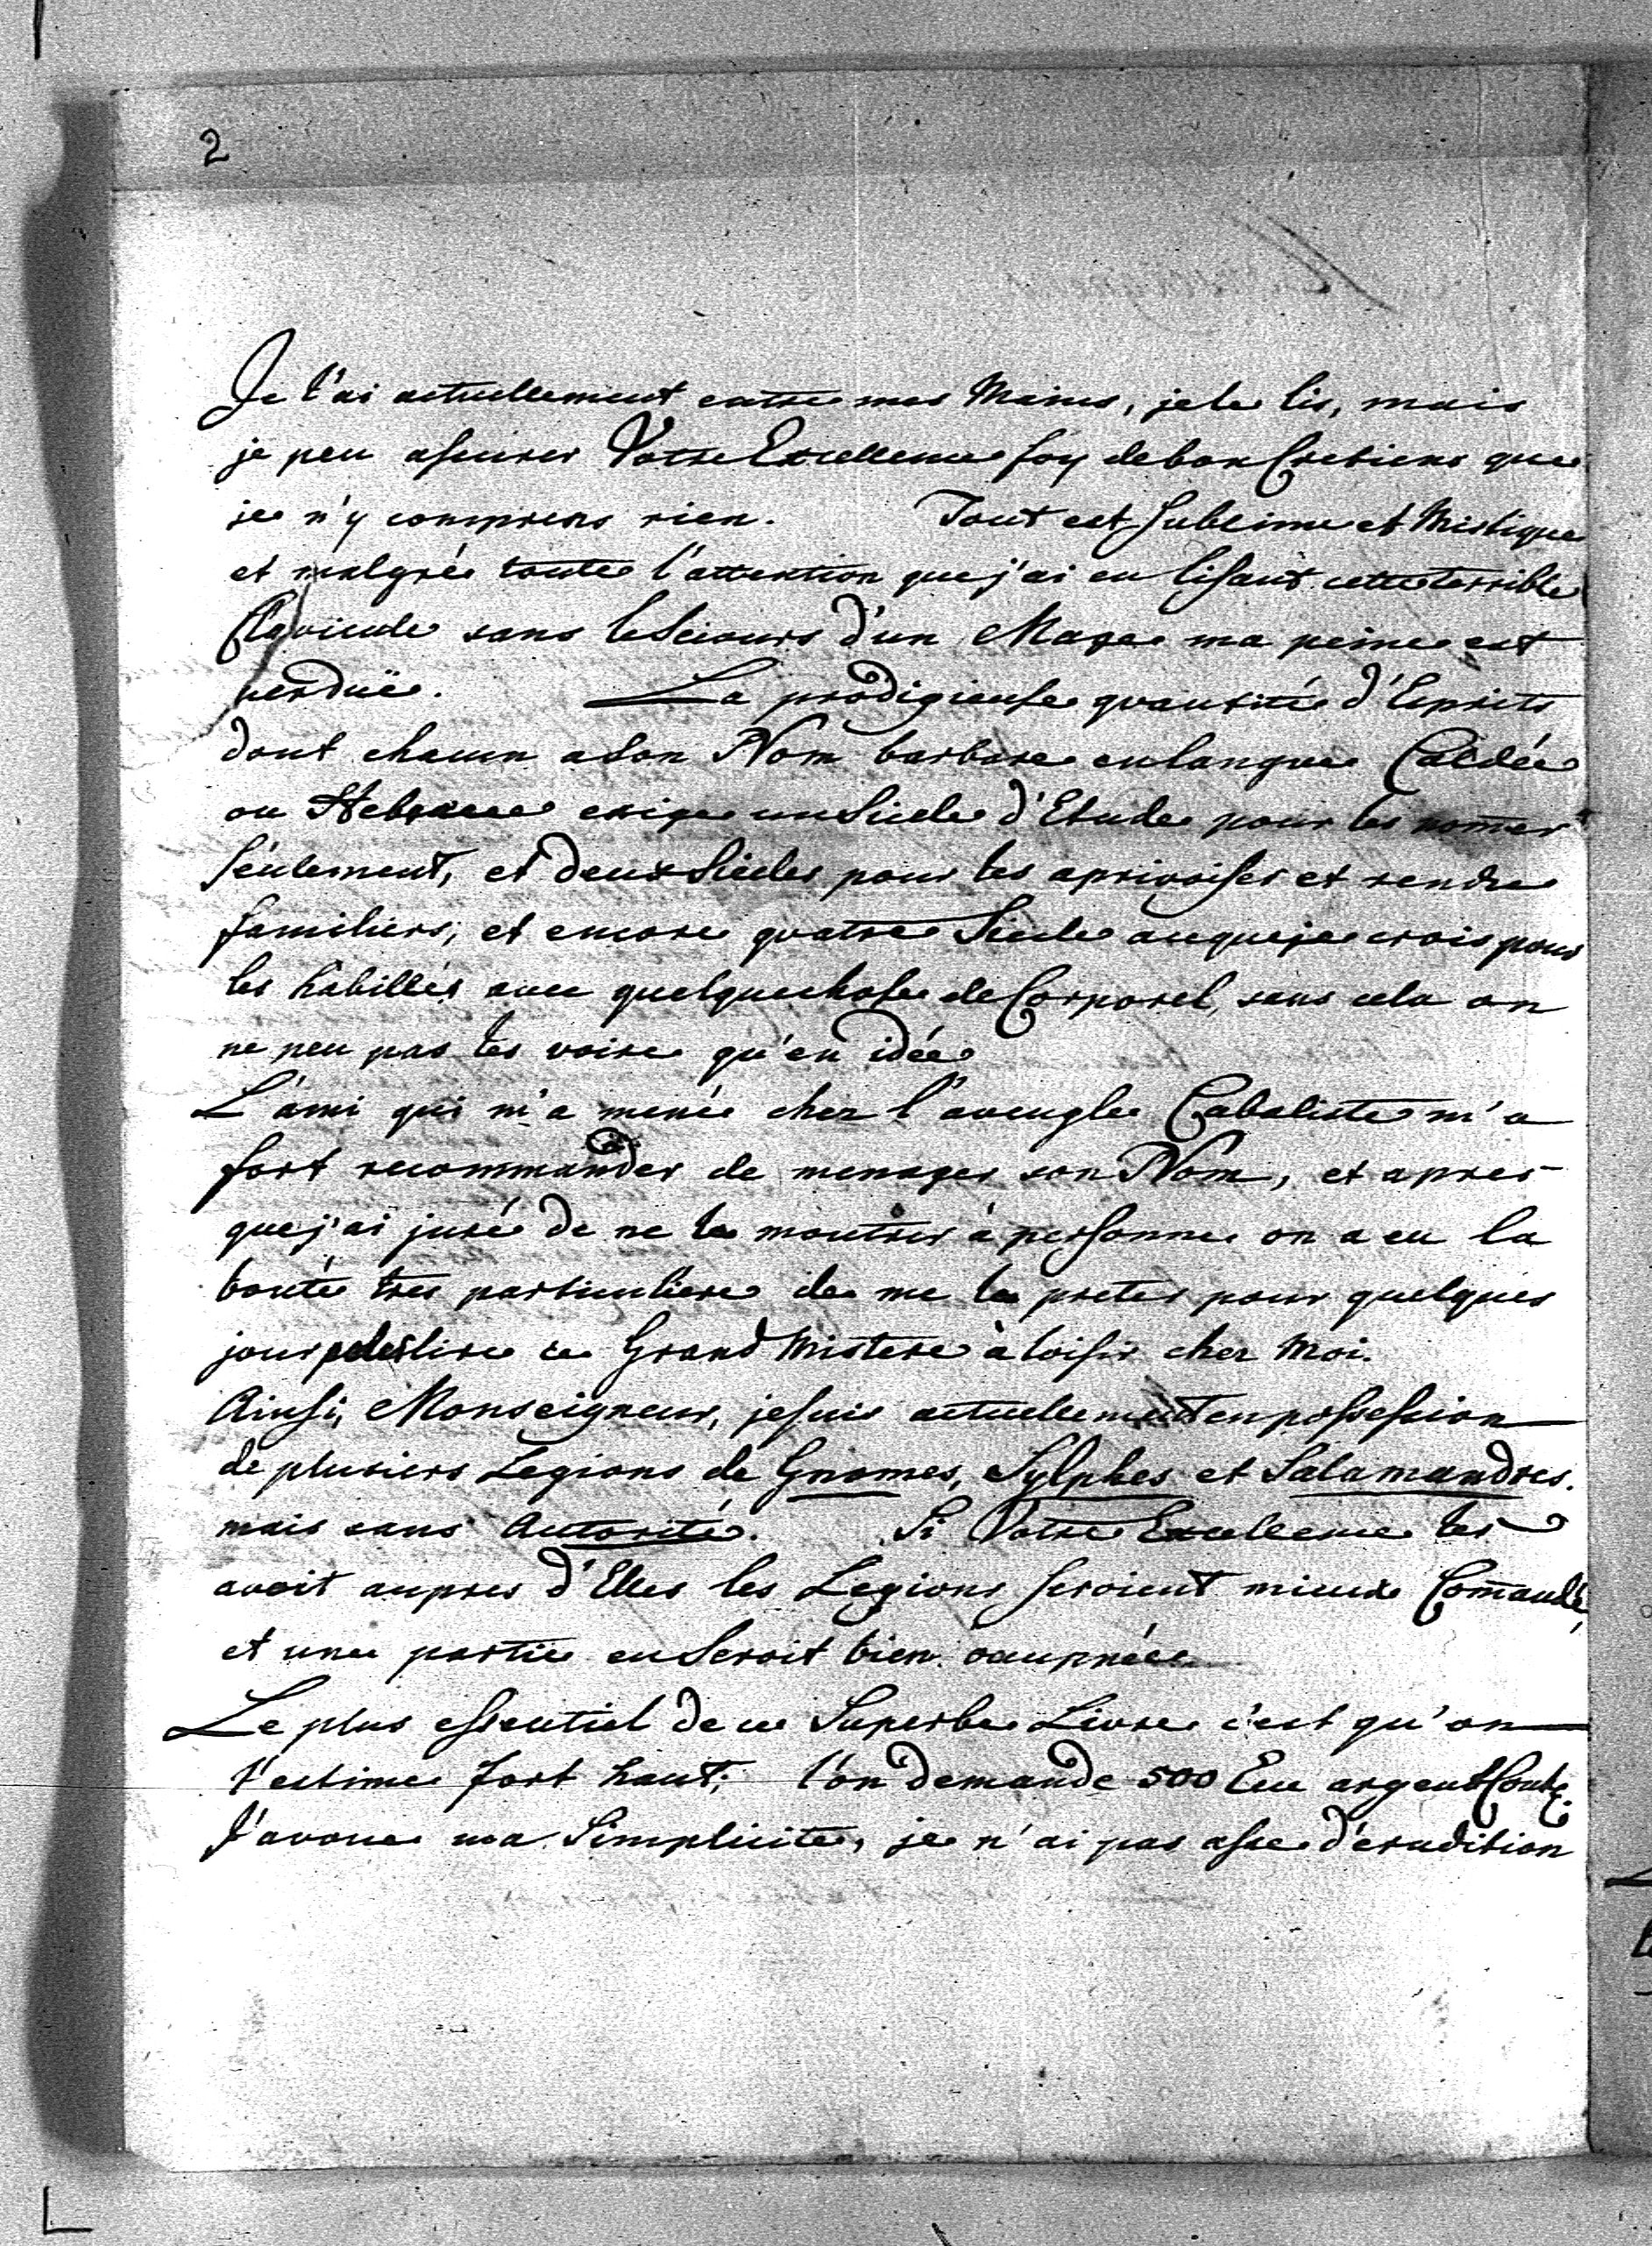 2
Je l'ai actuellement entre mes Mains, je le lis, mais
je peu assurer Votre Excellence foy de bon Cretiens que
je n'y comprens rien. Tout est Sublime et Mistique
et malgrée toute l'attention que j'ai eu lisant cette terrible
Clavicule sans le Secours d'un Mage ma peine est
perduë. La prodigieuse quantitée d'Esprits
dont chacun a son Nom barbare en langue Caldée
ou Hebraee exige un Siecle d'Etude pour les nom̄er
Seulement, et deux Siecles pour les aprivoiser et rendre
familiers, et encore quatre Siecle a ce que je crois pour
les habillés avec quelque chose de Corporel, sans cela on
ne peu pas les voire qu'en idée
L'ami qui m'a menée chez l'aveugle Cabaliste m'a
fort recommander de menager son Nom, et apres
que j'ai jurée de ne le montrer à personne on a eu la
bonté tres particuliere de me le preter pour quelques
jour lire ce Grand Mistere à loisir chez Moi.
Ainsi, Monseigneur, je suis actuellement en possession
de plusiers Legions de Gnomes, Sylphes et Salamandres.
mais sans Autorité. Si Votre Excellence les
avoit aupres d'Elles les Legions seroient mieux Com̄andé,
et une partie en Seroit bien
Le plus essentiel de ce Superbe Livre c'est qu'on
l'estime fort haut; l'on demande 500 Ecu argent Conte.
J'avoue ma Simplicite, je n'ai pas asse d'erudition